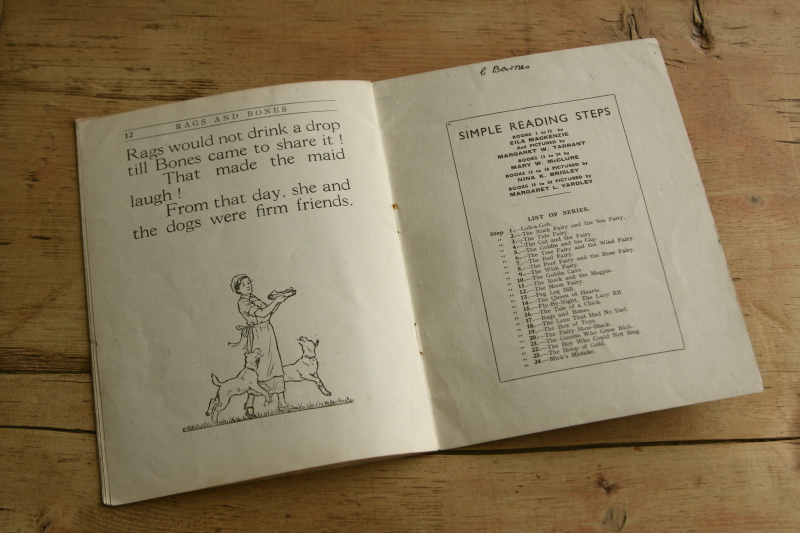 12 RAGS AND BONES
Rags would not drink a drop
till Bones came to share it!
That made the maid
laugh!
From that day, she and
the dogs were firm friends.
SIMPLE READING STEPS
BOOKS 1 to 12 by
EILA MACKENZIE
And PICTURED by
MARGARET W. TARRANT
BOOKS 13 to 24 by
MARY W. McCLURE
BOOKS 13 to 18 PICTURED by
NINA K. BRISLEY
BOOKS 19 to 24 PICTURED by
MARGARET L. YARDLEY
LIST OF SERIES.
Step 1.—Lob-a-Gob.
" 2.—The Rock Fairy and the Sea Fairy.
" 3.—The Tide Fairy.
" 4.—The Cat and the Fairy.
" 5.—The Goblin and his Cap.
" 6.—The Tree Fairy and the Wind Fairy.
" 7.—The Red Fairy.
" 8.—The Pool Fairy and the Rose Fairy.
" 9.—The Wish Fairy.
" 10.—The Goblin Cave.
" 11.—The Rook and the Magpie.
" 12.—The Moon Fairy.
" 13.—Peg Leg Bill.
" 14.—The Queen of Hearts.
" 15.—Fly-By-Night, The Lazy Elf.
" 16.—The Tale of a Cluck.
" 17.—Rags and Bones.
" 18.—The Lane That Had No End.
" 19.—The Box of Toys.
" 20.—The Fairy Shoe-Black.
" 21.—The Gnome Who Grew Rich.
" 22.—The Boy Who Could Not Sing.
" 23.—The Hoop of Gold.
" 24.—Mick's Mistake.